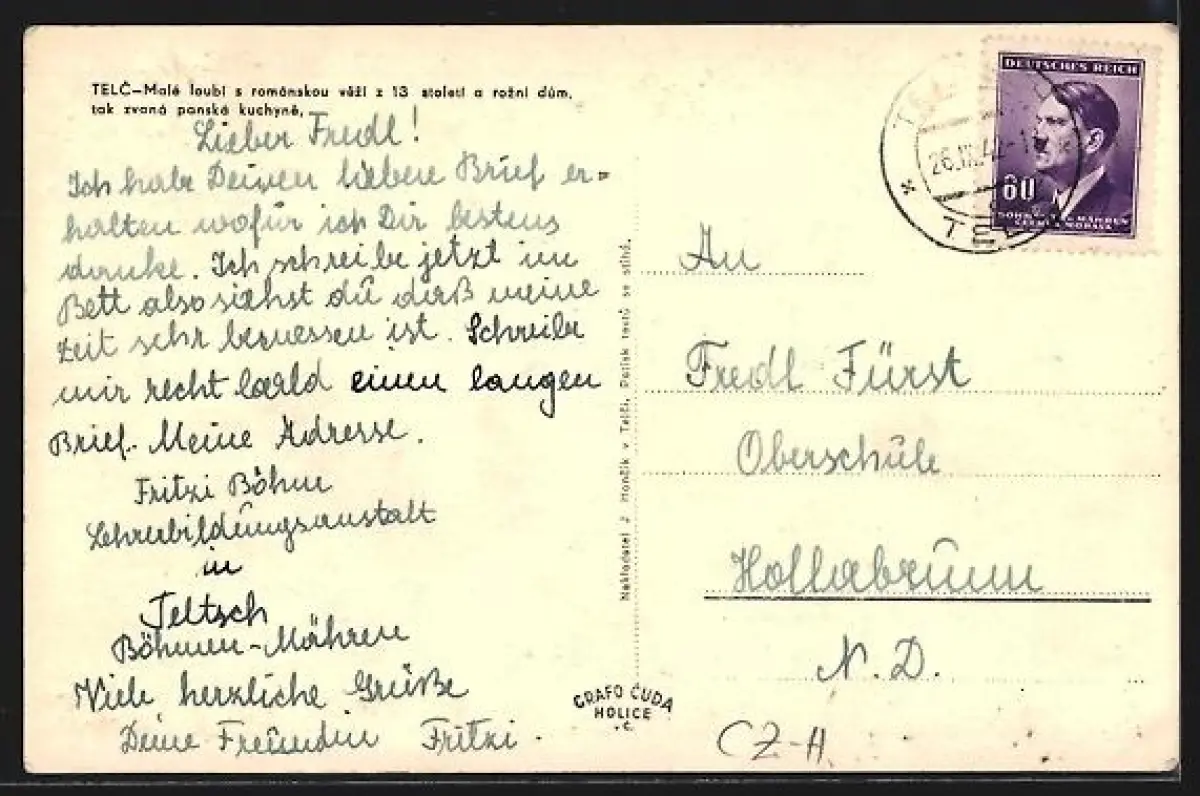 TELČ—Malé loubí s románskou věží z 13 století a rožní dům,
tak zvaná panská kuchyně,
Lieber Fredl!
Ich habe Deinen lieben Brief er=
halten wofür ich Dir bestens
danke. Ich schreibe jetzt im
Bett also siehst du daß meine
Zeit sehr bemessen ist. Schreibe
mir recht bald einen langen
Brief. Meine Adresse.
Fritzi Böhm
Lehrerbildungsanstalt
in
Teltsch
Böhmen-Mähren
Viele herzliche Grüße
Deine Freundin Fritzi.
Nakladatel J Hončík v Telči, Patisk textů se stíhá.
GRAFO ČUDA
HOLICE
Č.
DEUTSCHES REICH
60
BÖHMEN U. MÄHREN
ČECHY A MORAVA
26.
TEL
An
Fredl Fürst
Oberschule
Hollabrunn
N. D.
CZ-H